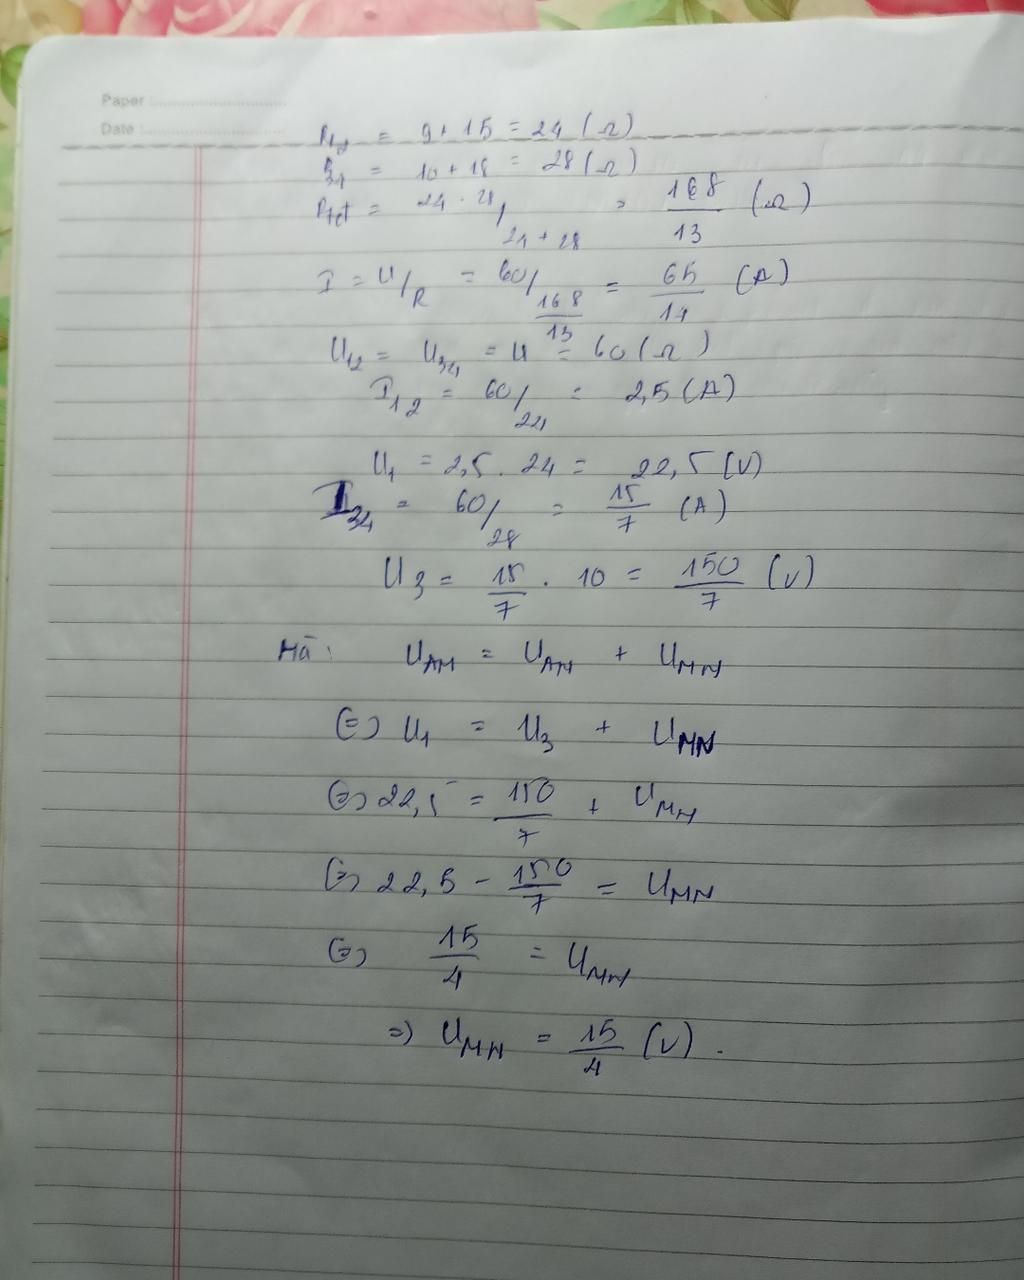 Paper
Date :
R12 = 9 + 15 = 24 (Ω)
R34 = 10 + 18 = 28 (Ω)
Rtđ = 24 . 28 / 24 + 28 = 168/13 (Ω)
I = U/R = 60/ 168/13 = 65/14 (A)
U12 = U34 = U = 60 (Ω)
I12 = 60/24 = 2,5 (A)
U1 = 2,5 . 24 = 22,5 (V)
I34 = 60/28 = 15/7 (A)
U3 = 15/7 . 10 = 150/7 (V)
Mà : UAM = UAN + UMN
(=) U1 = U3 + UMN
(=) 22,5 = 150/7 + UMN
(=) 22,5 - 150/7 = UMN
(=) 15/4 = UMN
=) UMN = 15/4 (V) .